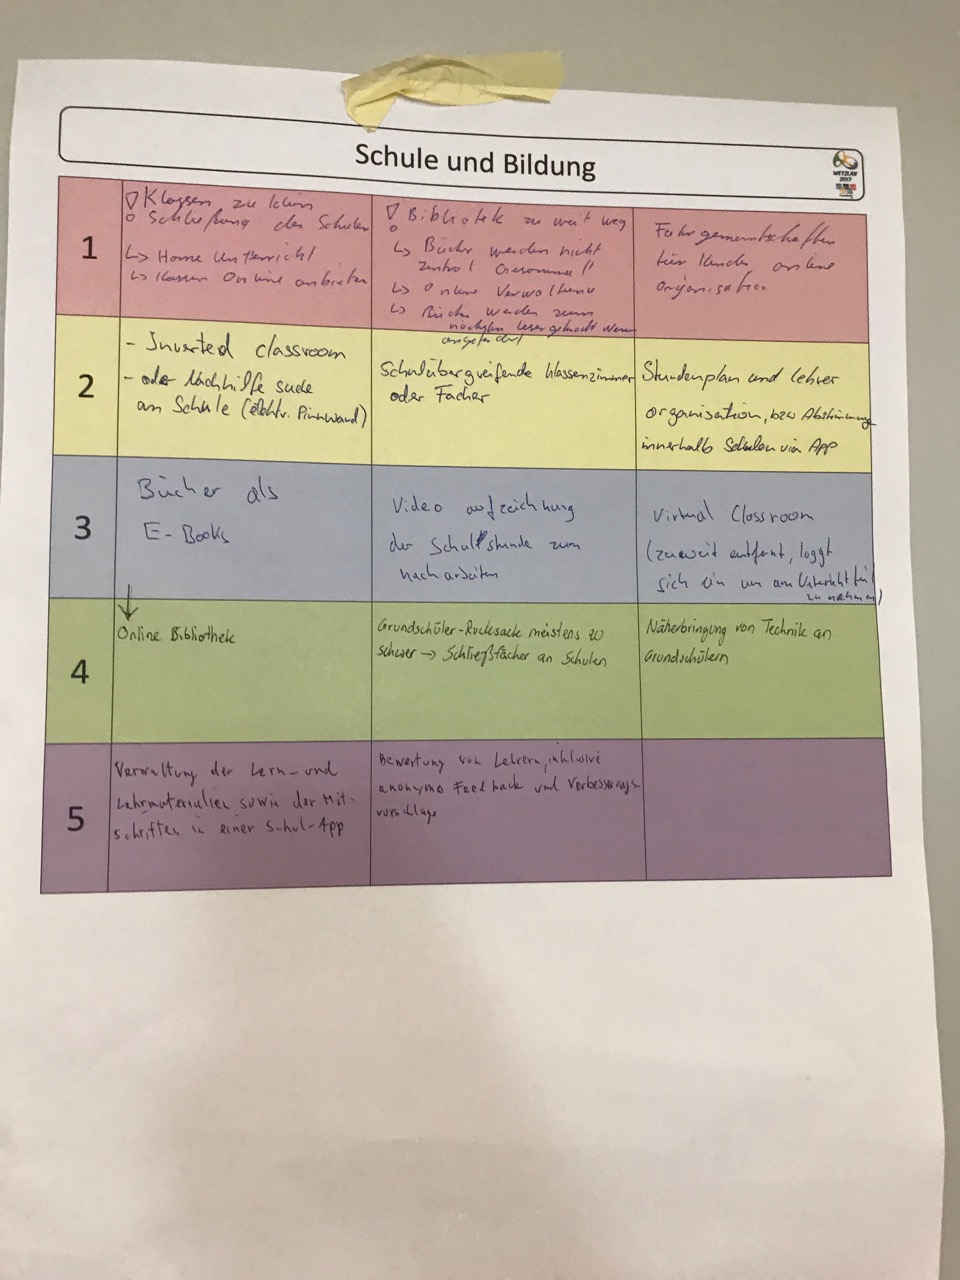 Schule und Bildung
WETZLAR
2017
1
Klassen zu klein
Schließung der Schulen
↳ Home Unterricht
↳ Klassen Online anbieten
Bibliotek zu weit weg
↳ Bücher werden nicht
zentral Gesammelt
↳ Online Verwaltung
↳ Bücher werden zum
nächsten Leser gebracht wenn
angefordert
Fahrgemeinschaften
für Kinder online
organisation
2
- Inverted classroom
- oder Nachhilfe suche
an Schule (elektr. Pinnwand)
Schulübergreifende Klassenzimmer
oder Fächer
Stundenplan und Lehrer
organisation, bzw Abstimmung
innerhalb Schulen via App
3
Bücher als
E-Books
Video aufzeichnung
der Schulstunde zum
nacharbeiten
Virtual Classroom
(zu weit entfernt, loggt
sich ein um am Unterricht teil
zu nehmen)
4
↓
Online Bibliothek
Grundschüler-Rucksack meistens zu
schwer → Schließfächer an Schulen
Näherbringung von Technik an
Grundschülern
5
Verwaltung der Lern- und
Lehrmaterialien sowie der Mit-
schriften in einer Schul-App
Bewertung von Lehrern, inklusive
anonymes Feedback und Verbesserungs-
vorschläge